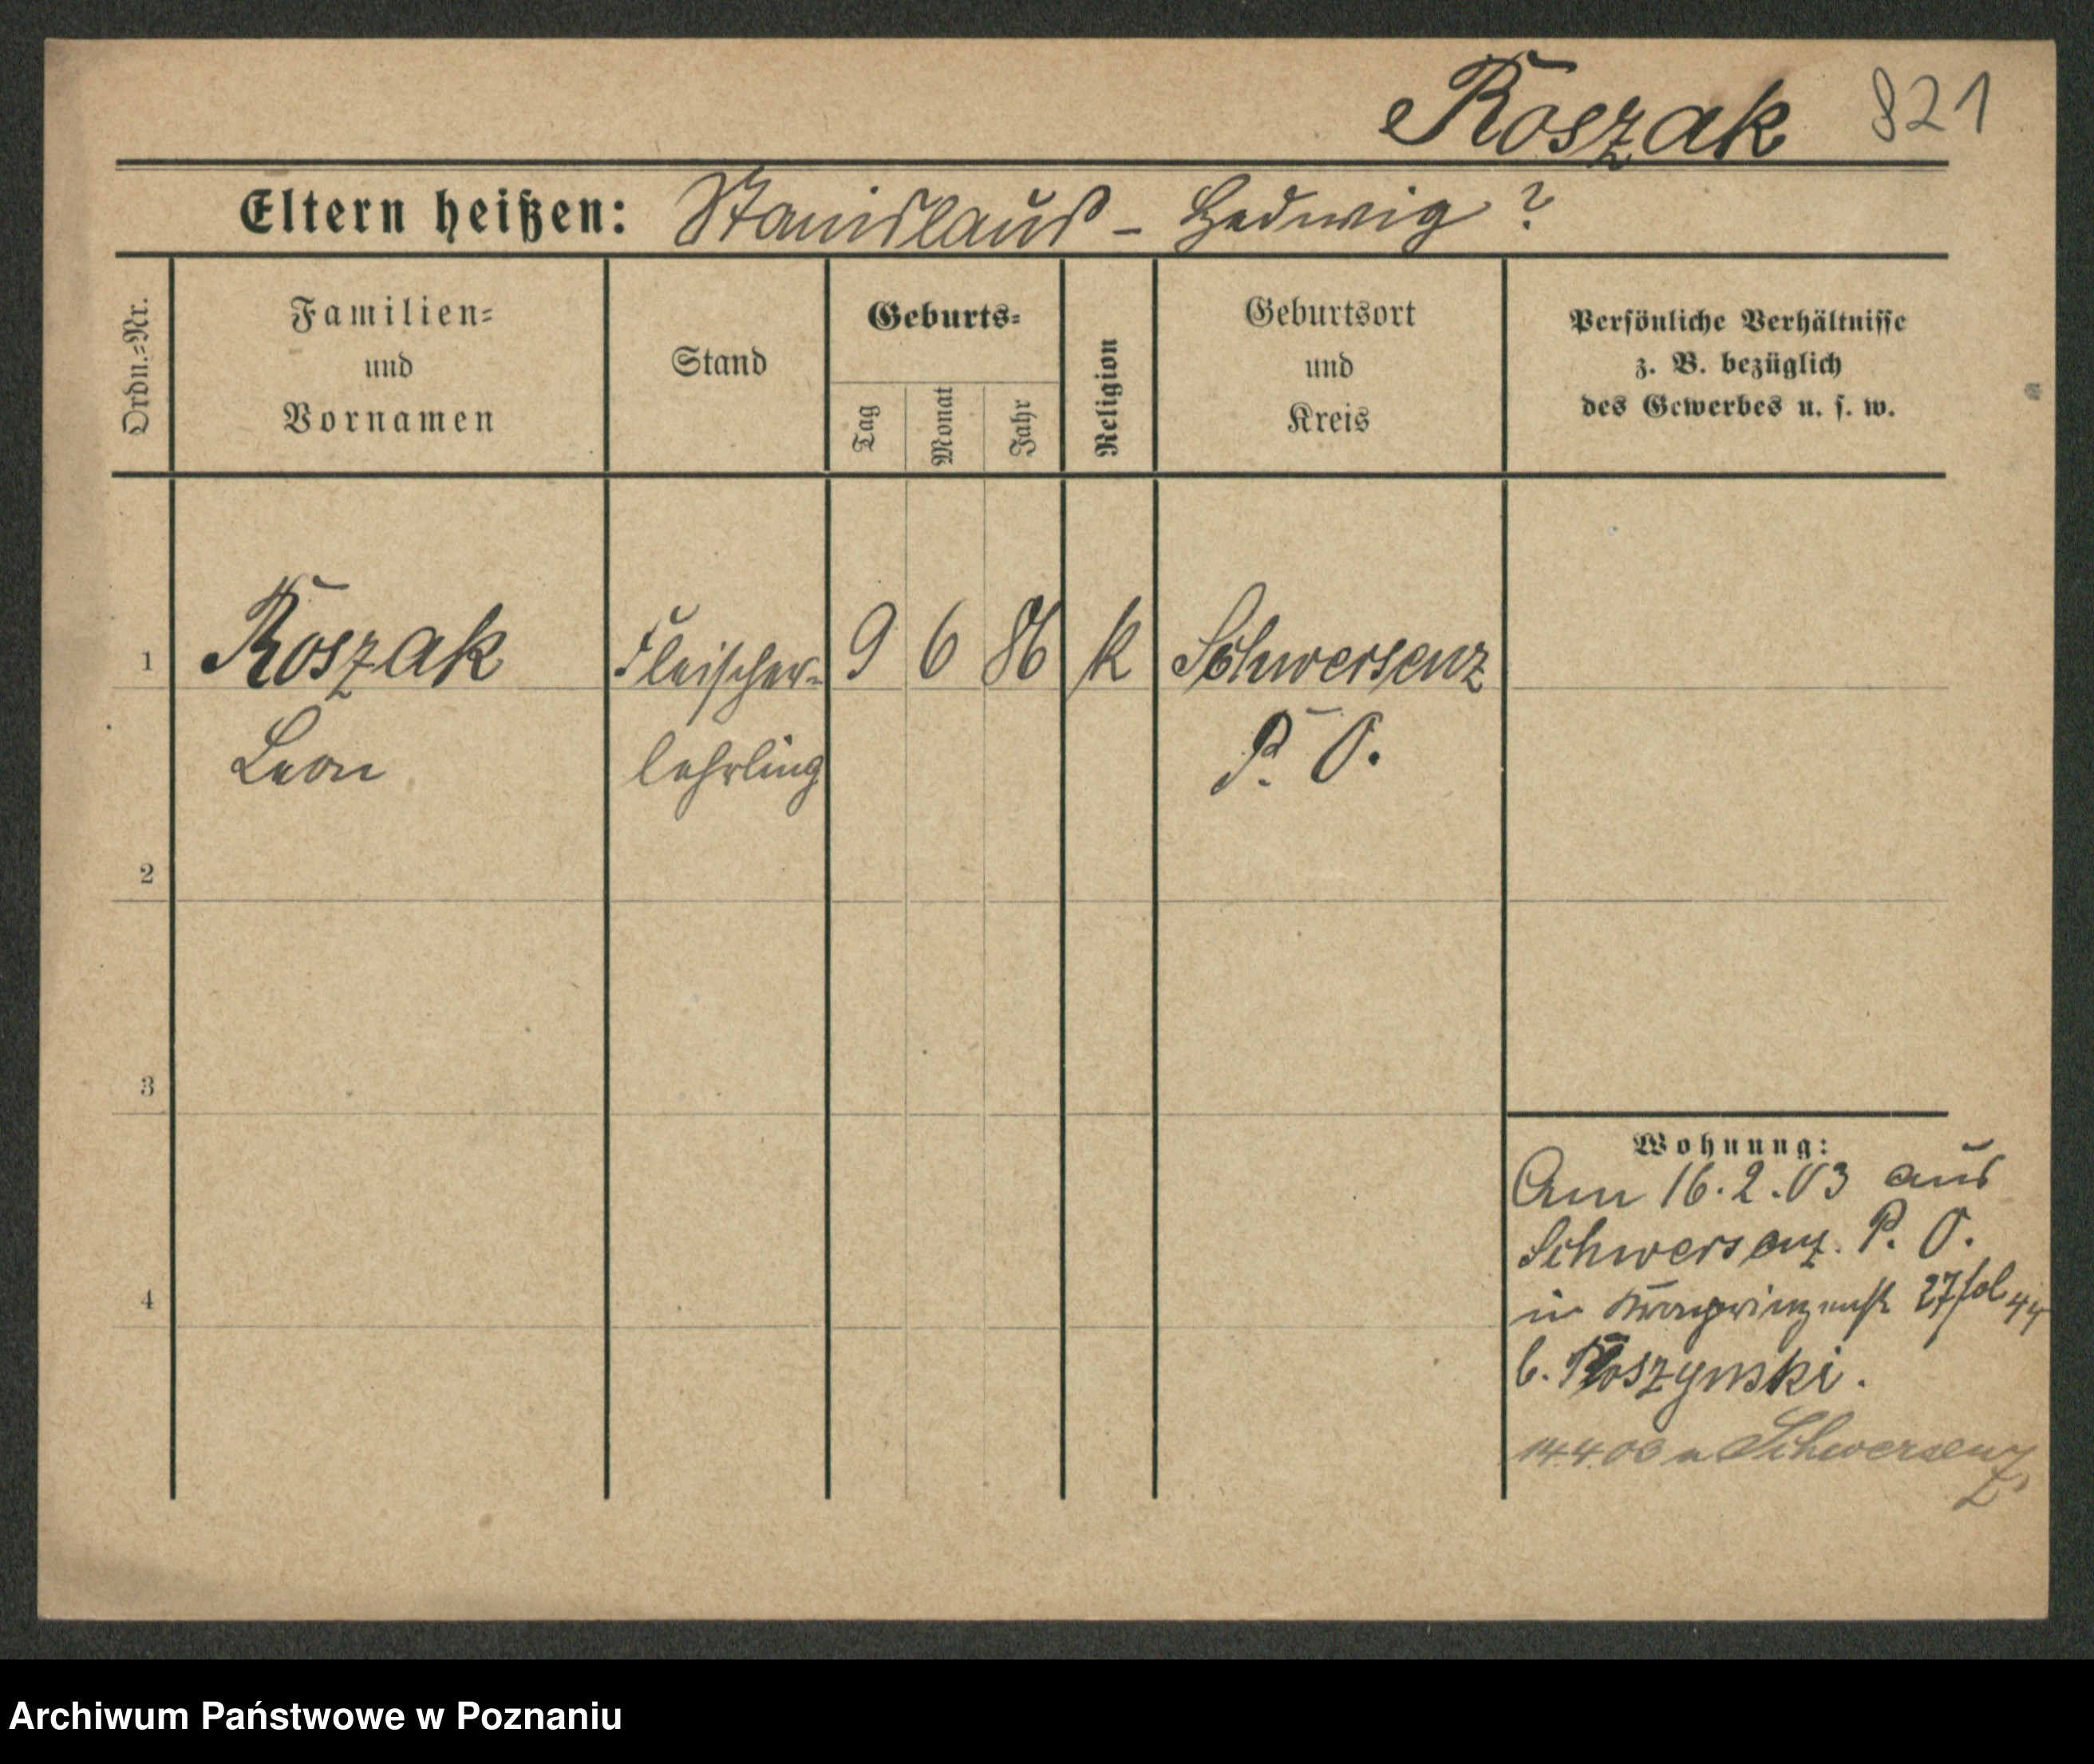 Roszak 821
Eltern heißen: Stanislaus - Hedwig ?
Ordn.=Nr.
Familien=
und
Vornamen
Stand
Geburts=
Tag
Monat
Jahr
Religion
Geburtsort
und
Kreis
Persönliche Verhältnisse
z. B. bezüglich
des Gewerbes u. s. w.
1 Roszak Fleischer- 9 6 86 k Schwersenz
Leon lehrling P. O.
2
3
4
Wohnung:
Am 16.2.03 aus
Schwersenz. P. O.
in Kronprinzenst 27 fol 44
b. Roszynski.
14.4.03 n Schwersenz
Archiwum Państwowe w Poznaniu